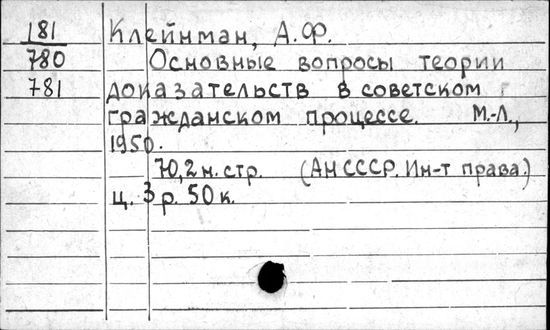 181 Клейнман, А.Ф.
780 Основные вопросы теории
781 доказательств в советском
гражданском процессе. М.-Л.,
1950.
70,2 н. стр. (АН СССР. Ин-т права.)
ц. 3 р. 50 к.